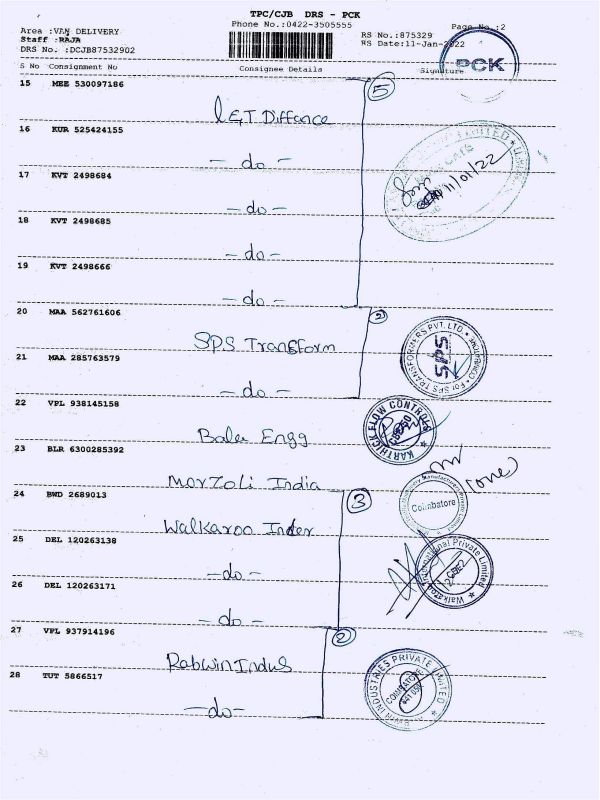 TPC/CJB DRS - PCK
Phone No.:0422-3505555
Area :VAN DELIVERY
Staff :RAJA
DRS No. :DCJB87532902
RS No.:875329
RS Date:11-Jan-2022
Page No.:2
PCK
S No Consignment No Consignee Details Signature
15 MEE 530097186
L&T Diffance
5
16 KUR 525424155
- do -
17 KVT 2498684
- do -
11/01/22
18 KVT 2498685
- do -
19 KVT 2498666
- do -
20 MAA 562761606
SPS Transform
2
SPS TRANSFORMERS PVT. LTD.
SPS
21 MAA 285763579
- do -
22 VPL 938145158
Balu Engg
KARTHICK FLOW CONTROLS
23 BLR 6300285392
Marzoli India
Coimbatore
(one)
24 BWD 2689013
Walkaroo Inder
3
25 DEL 120263138
- do -
Walkaroo International Private Limited
26 DEL 120263171
- do -
27 VPL 937914196
Rabwin Indus
2
INDUSTRIES PRIVATE LIMITED
28 TUT 5866517
- do -